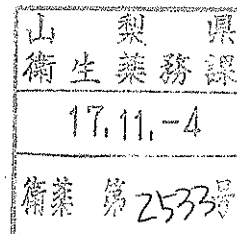 山梨県
衛生薬務課
17.11.-4
衛薬 第2533号